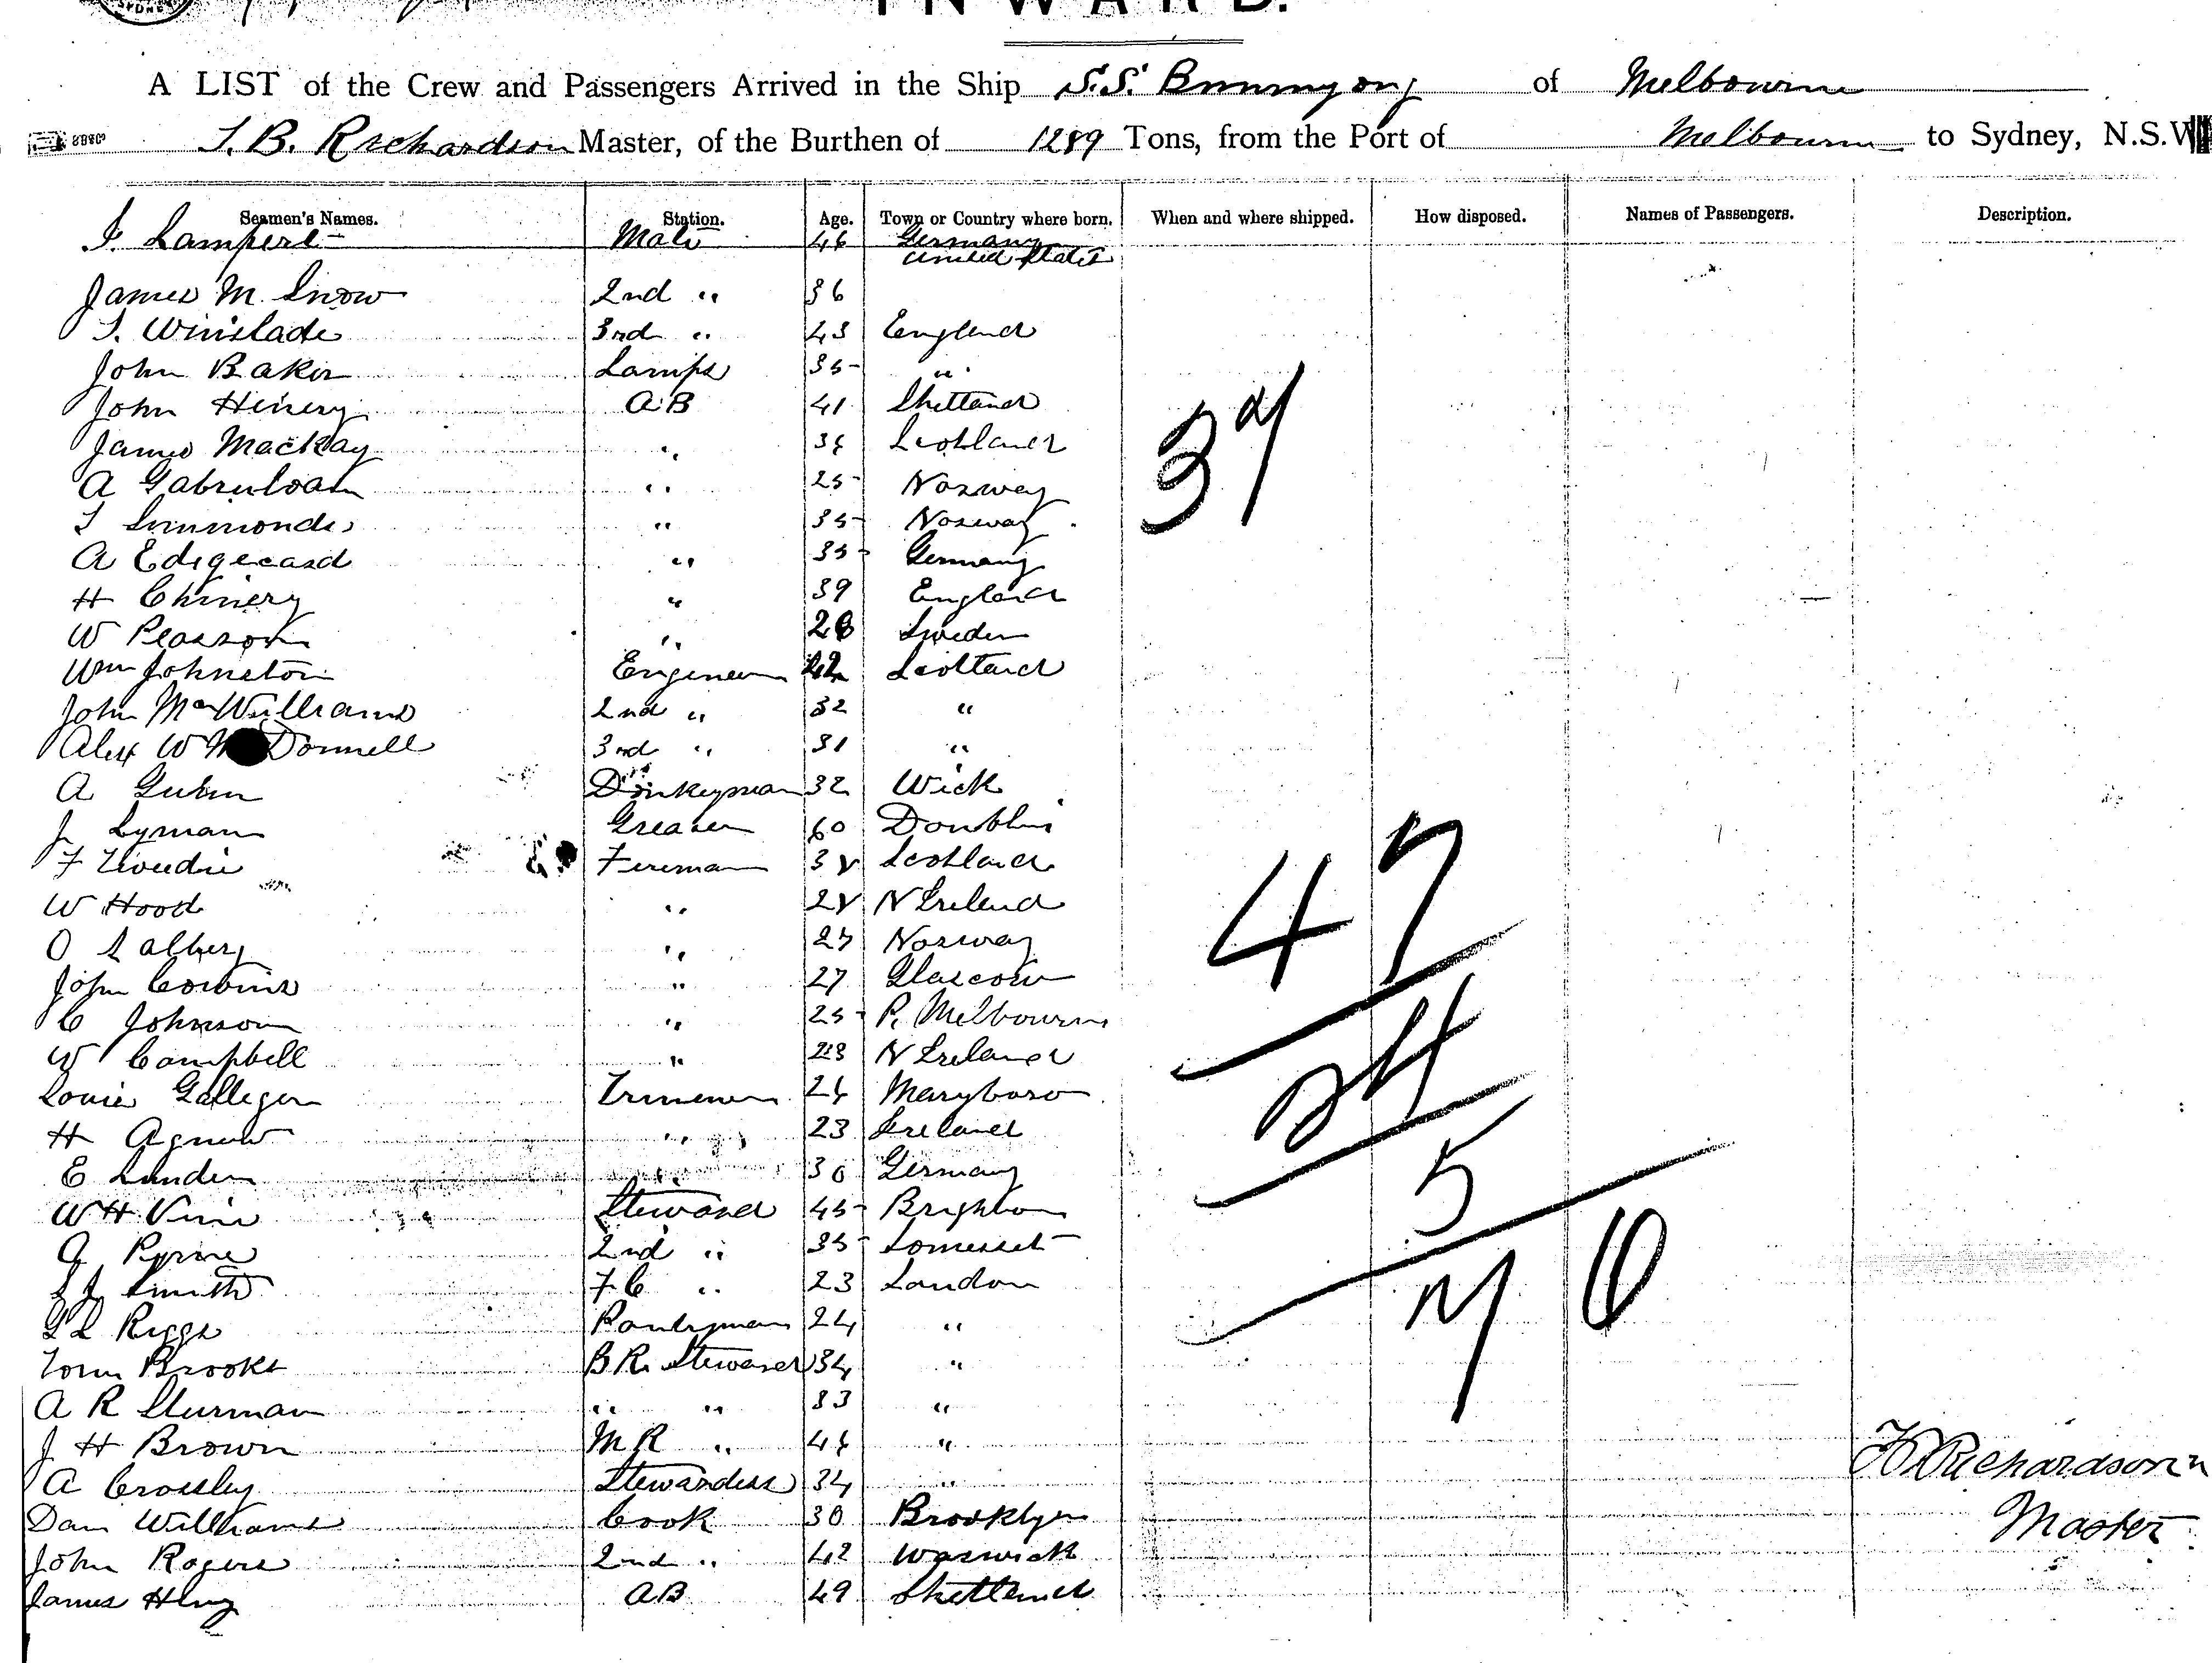 INWARD.
A LIST of the Crew and Passengers Arrived in the Ship S.S. Buninyong of Melbourne
T. B. Richardson Master, of the Burthen of 1289 Tons, from the Port of Melbourne to Sydney, N.S.W
Seamen's Names. Station. Age. Town or Country where born. When and where shipped. How disposed. Names of Passengers. Description.
Lampert Mate 46 Germany
United States
James M. Snow 2nd " 36
T. Winslade 3rd " 43 England
John Baker Lamps 35 "
John Henery AB 41 Shetland
James Mackay " 36 Scotland
A " 25 Norway
Simmonds " 35 Norway
A Edigecasd " 35 Germany
H Chinery " 39 England
W Pearson " 28 Sweden
Wm Johnston Engineer 42 Scotland
John McWilliams 2nd " 32 "
Alex W McDonnell 3rd " 31 "
A Gunn Donkeyman 32 Wick
J Lyman Greaser 60 Doublin
F Tweedie Fireman Scotland
W Hood " N Ireland
O Salberg " Norway
John Corbins " 27 Glascow
C Johnson " 25 P. Melbourne
W Campbell " 23 N Ireland
Louis Galleger Trimmer 26 Maryboro
H Agnew " 23 Ireland
E Lunden " 30 Germany
W H Vine Steward 45 Brighton
2nd " 35 Somerset
Smith F C " 23 London
Riggs Pantryman 24 "
Tom Brooks B R. Steward 34 "
A R Sturman " " 33 "
J H Brown M R " 46 "
A Crossley Stewardess 34 "
Dan Williams Cook 30 Brooklyn
John Rogers 2nd " 42 Warwick
James Hey AB 49 Shettland
47
5
Richardson
Master